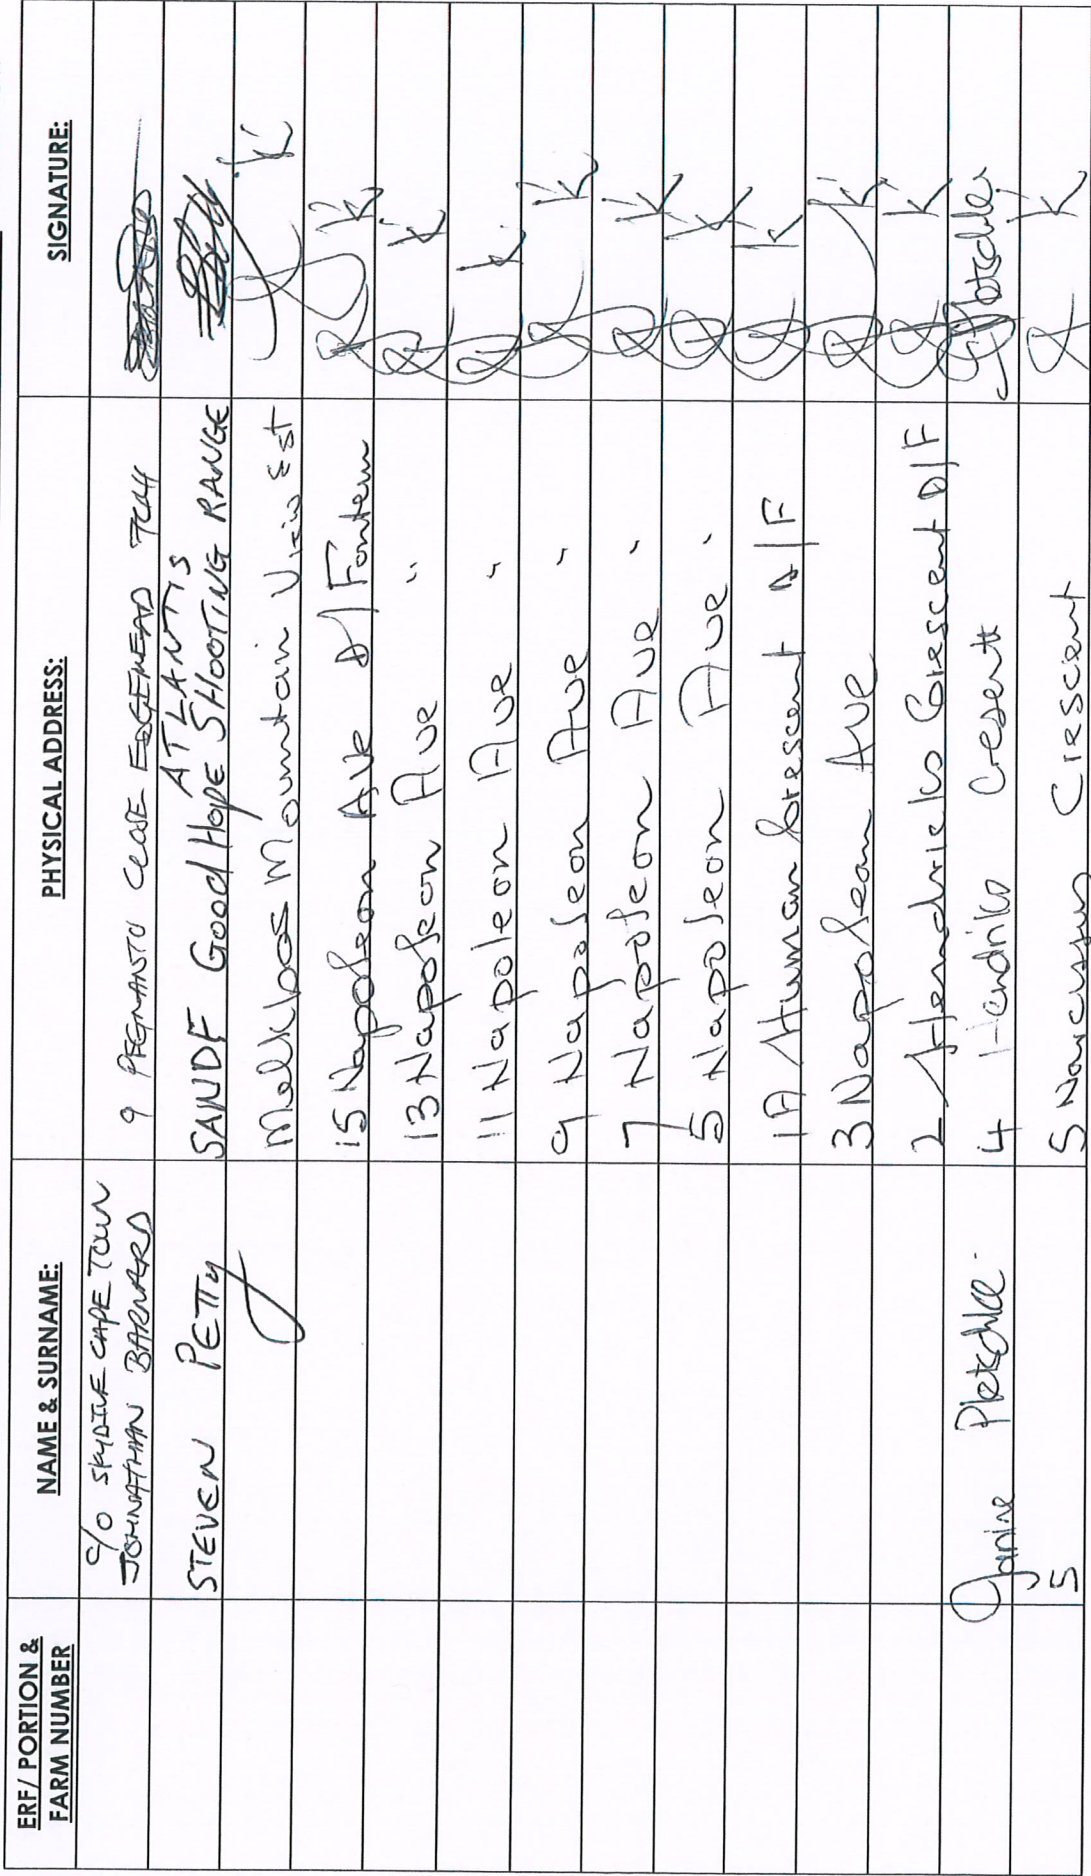 ERF/ PORTION &
FARM NUMBER
NAME & SURNAME:
PHYSICAL ADDRESS:
SIGNATURE:
C/O SKYDIVE CAPE TOWN
JOHNATHAN BARNARD
9 CLOSE EDGEMEAD 7441
STEVEN PETTY
ATLANTIS
SANDF Good Hope SHOOTING RANGE
Melkbos Mountain View Est
K
15 Napoleon Ave D/Fontein
K
13 Napoleon Ave "
K
11 Napoleon Ave "
K
9 Napoleon Ave "
K
7 Napoleon Ave "
K
5 Napoleon Ave "
K
1A Human Crescent D/F
K
3 Napoleon Ave
K
2 Hendriks Crescent D/F
K
Janine
4 Hendriks Cresent
5
5 Narcissus Crescent
K